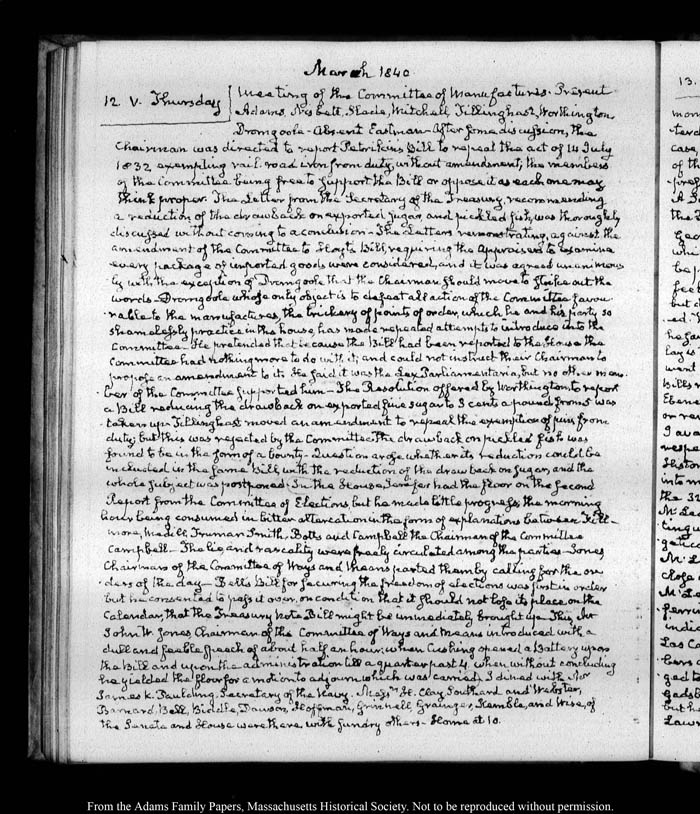 March 1840
12. V. Thursday
Meeting of the Committee of Manufactures. Present
Adams, Nisbett, Slade, Mitchell, Tillinghast, Worthington
Dromgoole - Absent Eastman - After some discussion, the
Chairman was directed to report Petrikin's Bill to repeal the act of 14 July
1832 exempting rail-road iron from duty, without amendment; the members
of the Committee being free to support the Bill or oppose it as each one may
think proper. The Letter from the Secretary of the Treasury, recommending
a reduction of the drawback on exported sugar, and pickled fish, was thoroughly
discussed without coming to a conclusion - The Letters remonstrating against the
amendment of the Committee to Bill, requiring the Appraisers to examine
every package of imported goods were considered, and it was agreed unanimous
ly with the exception of Dromgoole that the Chairman should move to strike out the
words. Dromgoole whose only object is to defeat all action of the Committee favou
rable to the manufactures, the trickery of points of order, which he and his party so
shamelessly practice in the house, has made repeated attempts to introduce into the
Committee. He pretended that because the Bill had been reported to the House the
Committee had nothing more to do with it; and could not instruct their Chairman to
propose an amendment to it. He said it was the Lex Parliamentaria, but no other mem
ber of the Committee supported him - The Resolution offered by Worthington to report
a Bill reducing the drawback on exported fine sugar to 3 cents a pound from 5 was
taken up. Tillinghast moved an amendment to repeal the exemption of from
duty; but this was rejected by the Committee. The drawback on pickled fish was
found to be in the form of a bounty - Question arose whether its reduction could be
included in the same Bill, with the reduction of the drawback on sugar, and the
whole subject was postponed. In the House, Jenifer had the floor on the second
Report from the Committee of Elections, but he made little progress, the morning
hour being consumed in bitter altercation in the form of explanations between Fill-
more, Medill, Truman Smith, Botts and Campbell the Chairman of the Committee
Campbell - The lie, and rascality were freely circulated among the parties - Jones
Chairman of the Committee of Ways and Means parted them by calling for the or-
ders of the day - Bell's Bill for securing the freedom of elections was first in order
but he consented to pass it over, on condition that it should not lose its place on the
Calendar, that the Treasury Note Bill might be immediately brought up. This, Mr
John W. Jones, Chairman of the Committee of Ways and Means introduced with a
dull and feeble speech of about half an hour; when Cushing opened a Battery upon
the Bill and upon the administration till a quarter past 4. when without concluding
he yielded the floor for a motion to adjourn which was carried. I dined with Mr
James K. Paulding, Secretary of the Navy. Messrs H. Clay, Southard and Webster,
Barnard, Bell, Biddle, Dawson, Hoffman, Grinnell, Granger, Kemble, and Wise, of
the Senate and House were there with sundry others - Home at 10.
13.
From the Adams Family Papers, Massachusetts Historical Society. Not to be reproduced without permission.